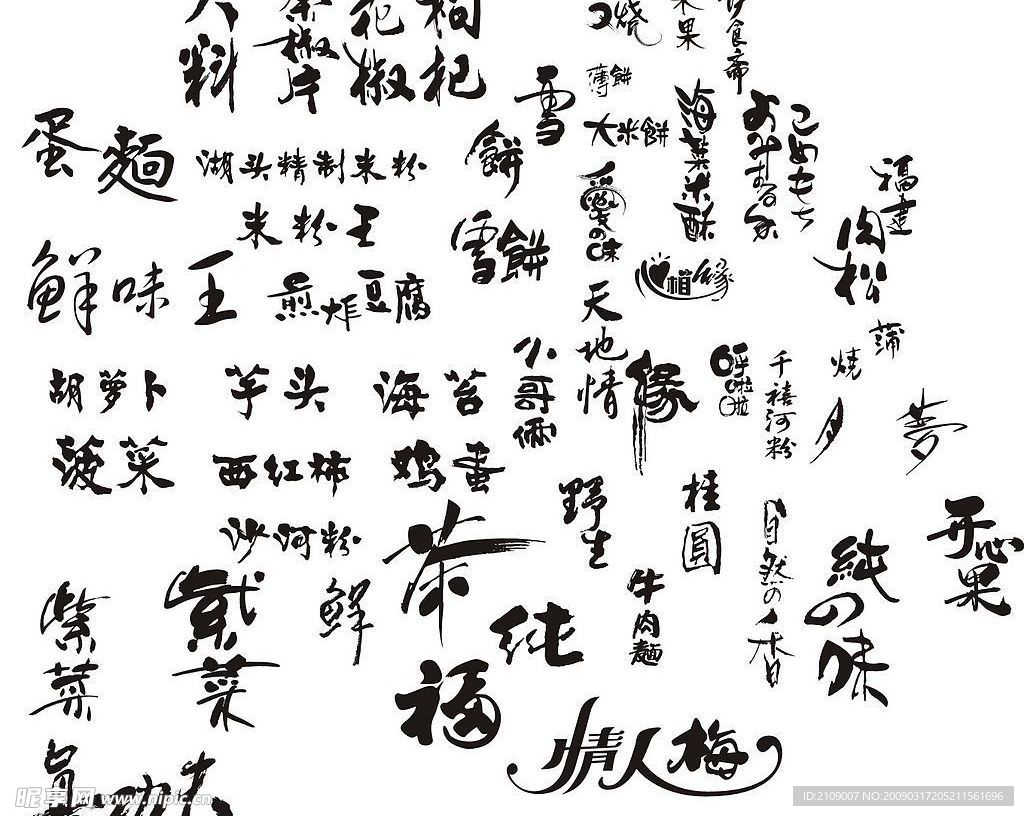 大料
椒片
花椒
枸杞
烧
果
食斋
薄餅
雪
餅
大米餅
海菜米酥
こめもち
福建
肉松
蛋麵
湖头精制米粉
米粉王
愛の味
雪餅
相緣
鮮味王
煎炸豆腐
天地情
小哥俩
緣
呼啦啦
千禧河粉
烧
蒲
月
夢
胡萝卜
芋头
海苔
菠菜
西红柿
鸡蛋
沙河粉
茶
野生
桂圓
自然の香
純の味
开心果
紫菜
紫菜
鲜
纯
牛肉麵
福
情人梅
昵享网 www.nipic.cn
ID:2109007 NO:20090317205211561696